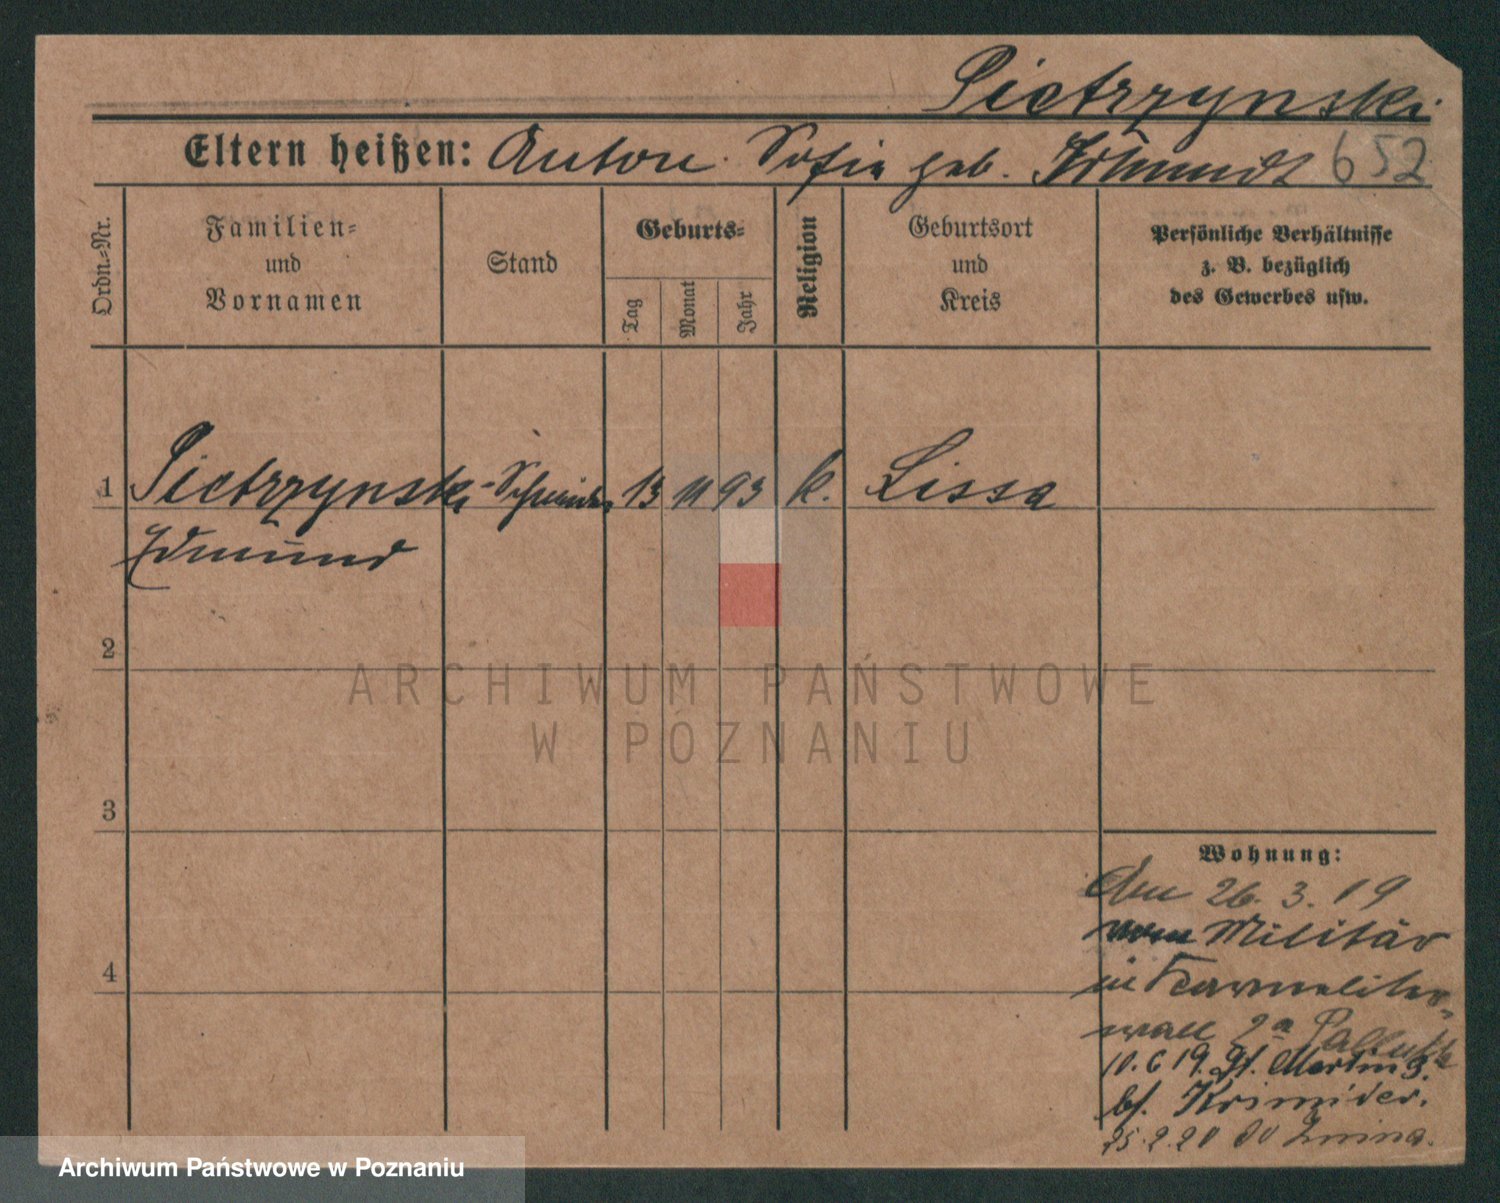 Pietrzynski
Eltern heißen: Anton Sofie geb. 652
Ordn.-Nr.
Familien-
und
Vornamen
Stand
Geburts-
Tag
Monat
Jahr
Religion
Geburtsort
und
Kreis
Persönliche Verhältnisse
z. B. bezüglich
des Gewerbes usw.
1 Pietrzynski Schneider 13 11 93 k. Lissa
Edmund
2
3
4
ARCHIWUM PAŃSTWOWE
W POZNANIU
Wohnung:
Am 26.3.19
vom Militär
in Karmeliter-
wall 2a
10.6 19. St. Martin
bf.
25.2.20
Archiwum Państwowe w Poznaniu